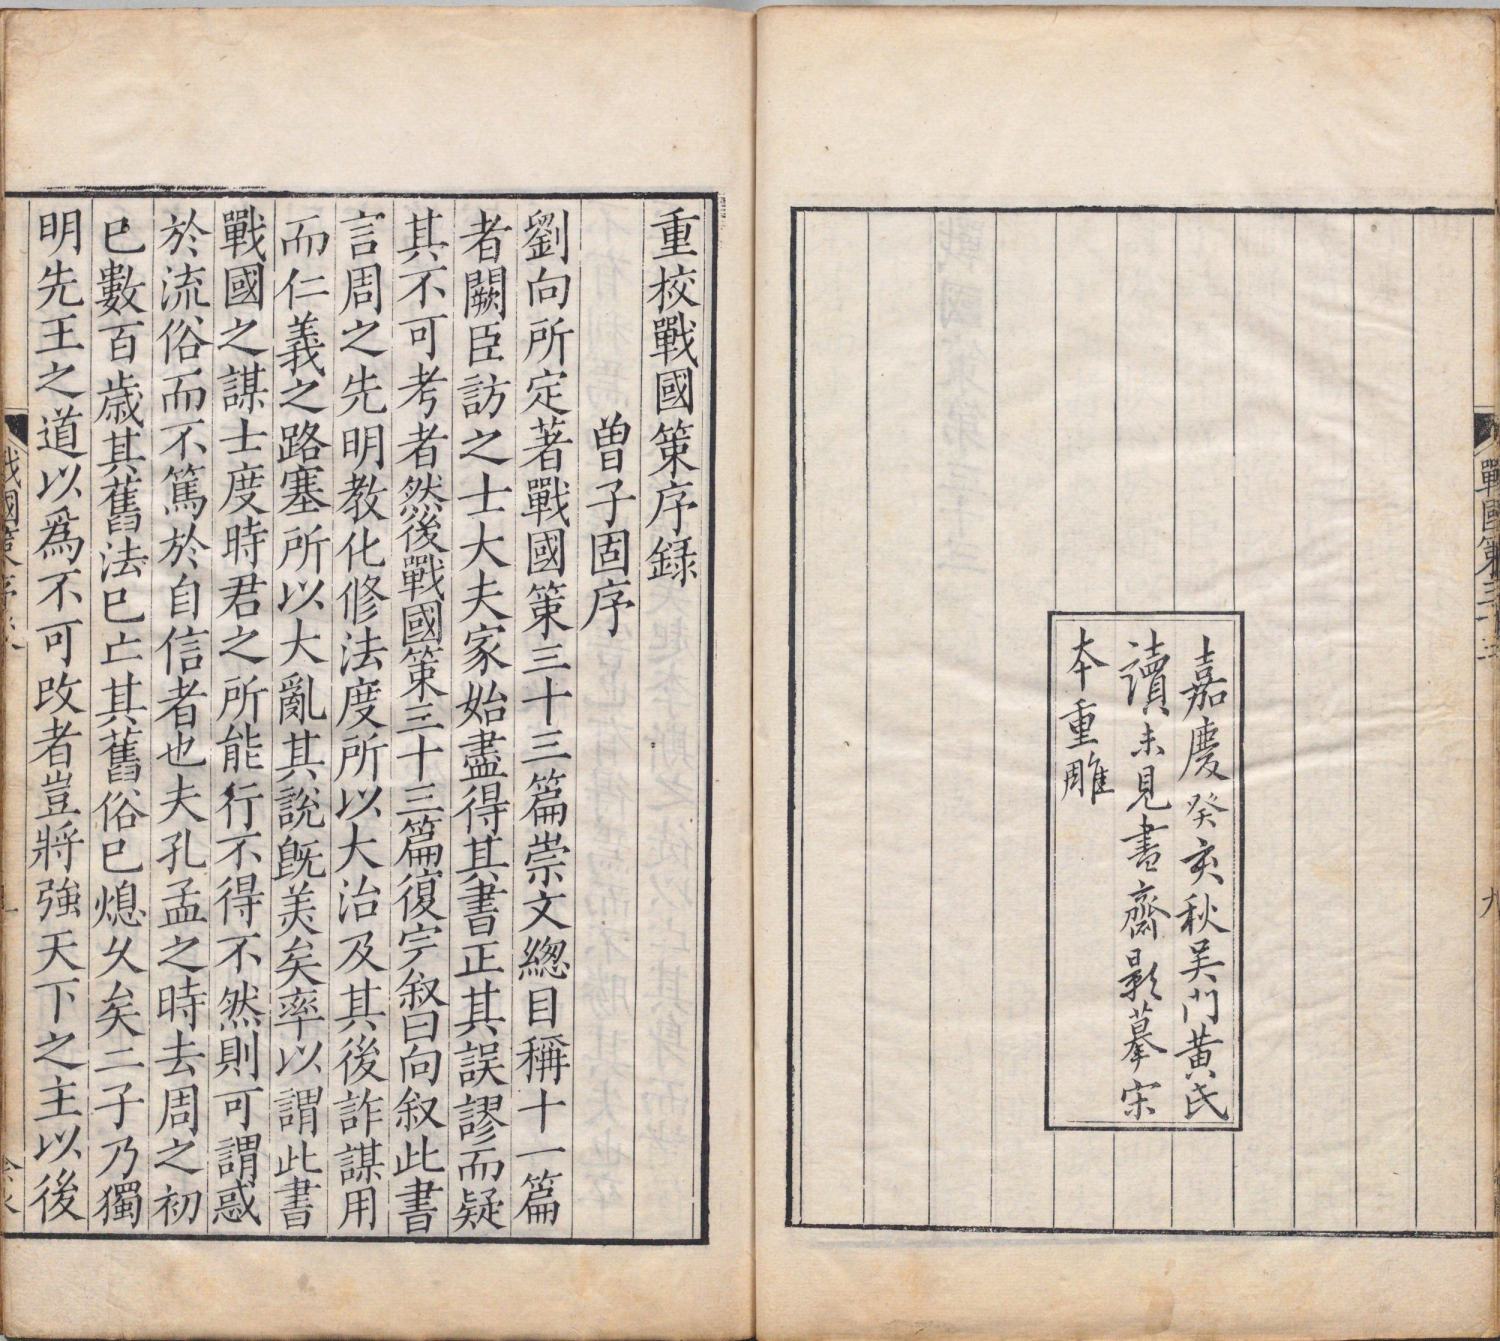 戰國策三十三
九
嘉慶癸亥秋吴門黄氏
讀未見書齋影摹宋
本重雕
重校戰國策序録
曾子固序
劉向所定著戰國策三十三篇崇文緫目稱十一篇
者闕臣訪之士大夫家始盡得其書正其誤謬而疑
其不可考者然後戰國策三十三篇復完叙曰向叙此書
言周之先明教化修法度所以大治及其後詐謀用
而仁義之路塞所以大亂其説既美矣率以謂此書
戰國之謀士度時君之所能行不得不然則可謂惑
於流俗而不篤於自信者也夫孔孟之時去周之初
已數百歳其舊法已亡其舊俗已熄乆矣二子乃獨
明先王之道以爲不可改者豈將強天下之主以後